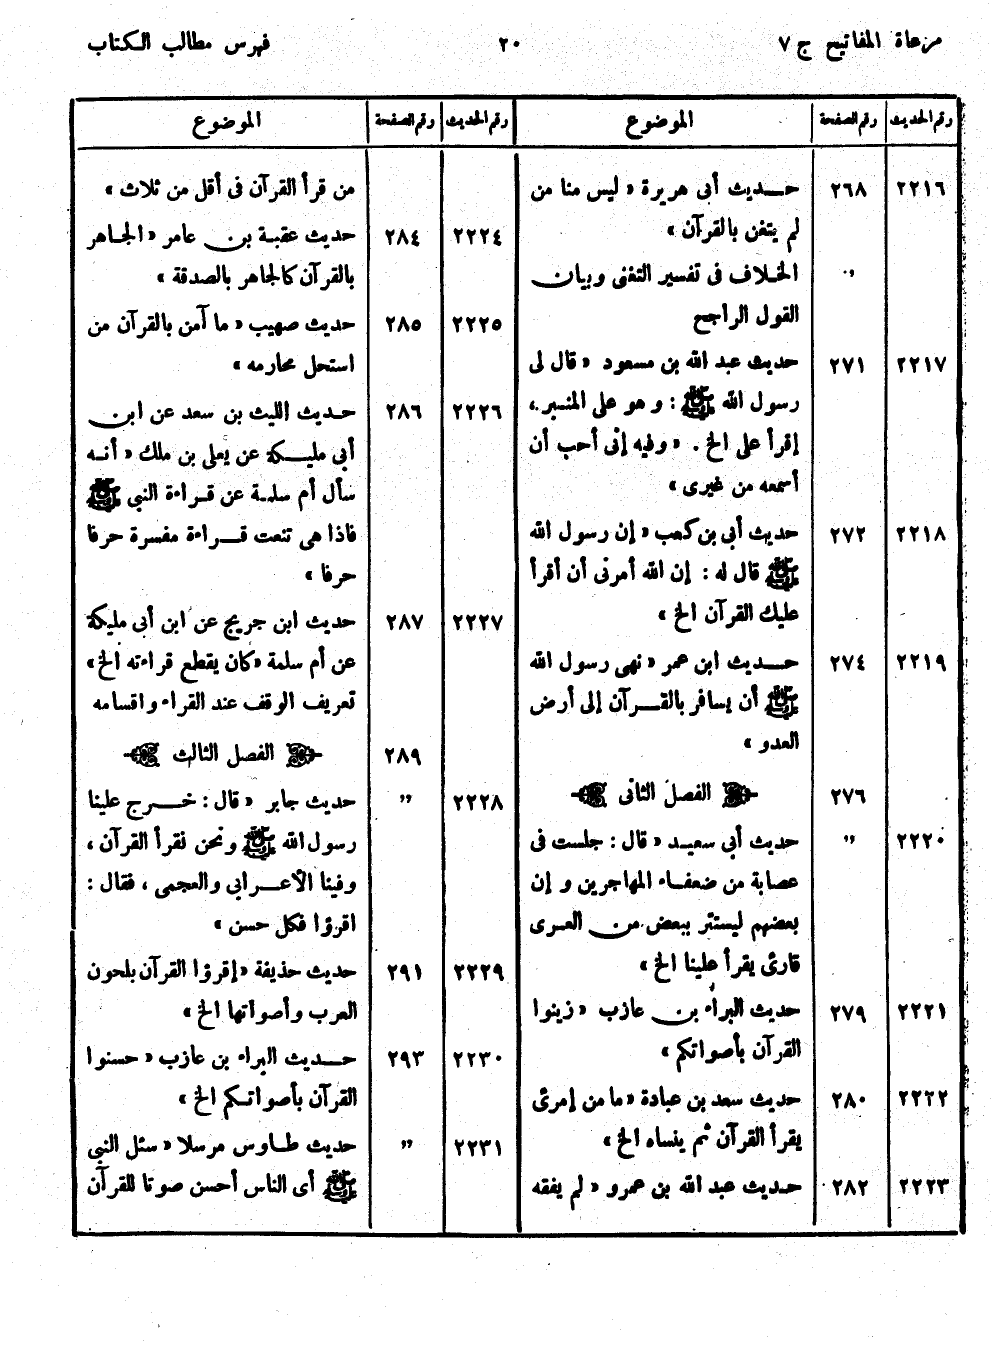 مرعاة المفاتيح ج ٧ ٢٠ فهرس مطالب الكتاب
رقم الحديث رقم الصفحة الموضوع
٢٢١٦ ٢٦٨ حديث أبى هريرة « ليس منا من
لم يتغن بالقرآن »
" الخلاف فى تفسير التغنى وبيان
القول الراجح
٢٢١٧ ٢٧١ حديث عبد الله بن مسعود « قال لى
رسول الله ﷺ : و هو على المنبر ،
إقرأ على الخ . « وفيه إنى أحب أن
أسمعه من غيرى »
٢٢١٨ ٢٧٢ حديث أبى بن كعب « إن رسول الله
ﷺ قال له : إن الله أمرنى أن أقرأ
عليك القرآن الخ »
٢٢١٩ ٢٧٤ حديث ابن عمر « نهى رسول الله
ﷺ أن يسافر بالقرآن إلى أرض
العدو »
٢٧٦ الفصل الثانى
٢٢٢٠ " حديث أبى سعيد « قال : جلست فى
عصابة من ضعفاء المهاجرين و إن
بعضهم ليستتر ببعض من العرى
قارئ يقرأ علينا الخ »
٢٢٢١ ٢٧٩ حديث البراء بن عازب « زينوا
القرآن بأصواتكم »
٢٢٢٢ ٢٨٠ حديث سعد بن عبادة « ما من إمرئ
يقرأ القرآن ثم ينساه الخ »
٢٢٢٣ ٢٨٢ حديث عبد الله بن عمرو « لم يفقه
رقم الحديث رقم الصفحة الموضوع
من قرأ القرآن فى أقل من ثلاث »
٢٢٢٤ ٢٨٤ حديث عقبة بن عامر « الجاهر
بالقرآن كالجاهر بالصدقة »
٢٢٢٥ ٢٨٥ حديث صهيب « ما آمن بالقرآن من
استحل محارمه »
٢٢٢٦ ٢٨٦ حديث الليث بن سعد عن ابن
أبى مليكة عن يعلى بن ملك « أنه
سأل أم سلمة عن قراءة النبى ﷺ
فاذا هى تنعت قراءة مفسرة حرفا
حرفا »
٢٢٢٧ ٢٨٧ حديث ابن جريج عن ابن أبى مليكة
عن أم سلمة « كان يقطع قراءته الخ »
تعريف الوقف عند القراء واقسامه
٢٨٩ الفصل الثالث
٢٢٢٨ " حديث جابر « قال : خرج علينا
رسول الله ﷺ ونحن نقرأ القرآن ،
وفينا الأعرابى والعجمى ، فقال :
اقرؤا فكل حسن »
٢٢٢٩ ٢٩١ حديث حذيفة « إقرؤا القرآن بلحون
العرب وأصواتها الخ »
٢٢٣٠ ٢٩٣ حديث البراء بن عازب « حسنوا
القرآن بأصواتكم الخ »
٢٢٣١ " حديث طاوس مرسلا « سئل النبى
ﷺ أى الناس أحسن صوتا للقرآن